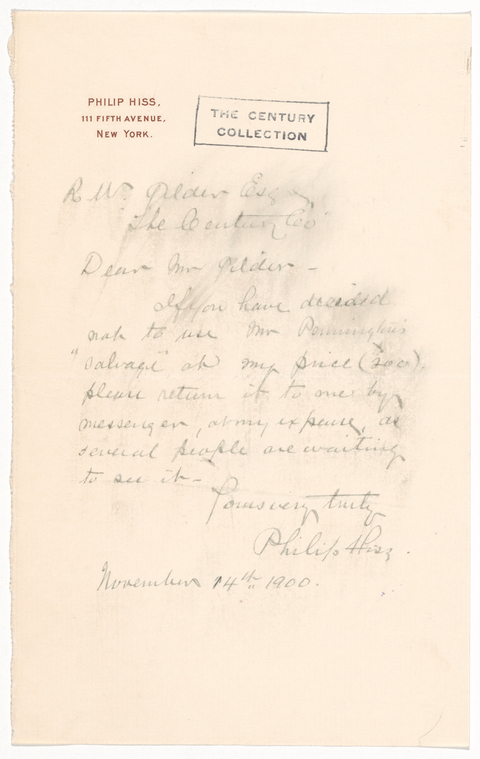 PHILIP HISS,
111 FIFTH AVENUE,
NEW YORK.
THE CENTURY
COLLECTION
R. W. Gilder Esq
"The Century Co"
Dear Mr Gilder -
If you have decided
not to use Mr Pennington's
"Salvage" at my price (200),
please return it to me by
messenger, at my expense, as
several people are waiting
to see it -
Yours very truly
Philip Hiss.
November 14th 1900.